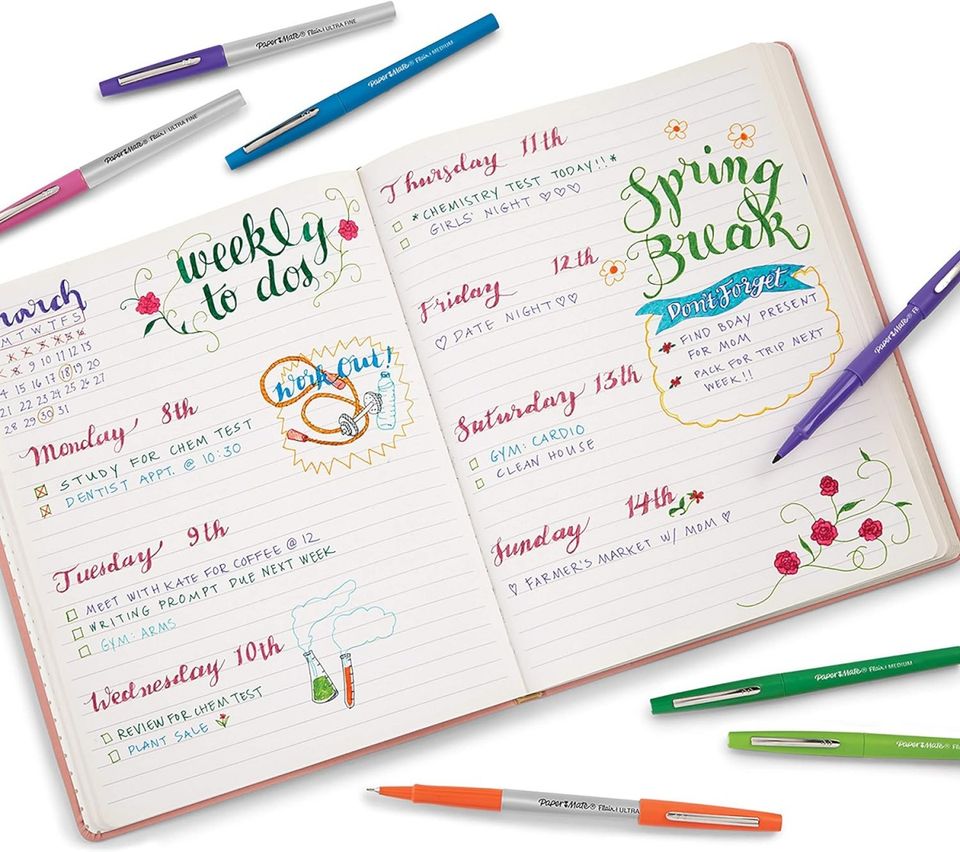 march
M T W T F S
9 10 11 12 13
15 16 17 18 19 20
21 22 23 24 25 26 27
28 29 30 31
weekly
to dos
Monday 8th
STUDY FOR CHEM TEST
DENTIST APPT. @ 10:30
Work Out!
Tuesday 9th
MEET WITH KATE FOR COFFEE @ 12
WRITING PROMPT DUE NEXT WEEK
GYM: ARMS
Wednesday 10th
REVIEW FOR CHEM TEST
PLANT SALE
Thursday 11th
*CHEMISTRY TEST TODAY!!*
GIRLS' NIGHT ♡♡♡
Friday 12th
♡ DATE NIGHT ♡♡
Saturday 13th
GYM: CARDIO
CLEAN HOUSE
Sunday 14th
♡ FARMER'S MARKET W/ MOM ♡
Spring
Break
Don't Forget
FIND BDAY PRESENT
FOR MOM
PACK FOR TRIP NEXT
WEEK!!
Paper Mate® Flair ULTRA FINE
Paper Mate® Flair MEDIUM
Paper Mate® Flair ULTRA FINE
Paper Mate®
Paper Mate® Flair MEDIUM
Paper Mate®
Paper Mate® Flair ULTRA